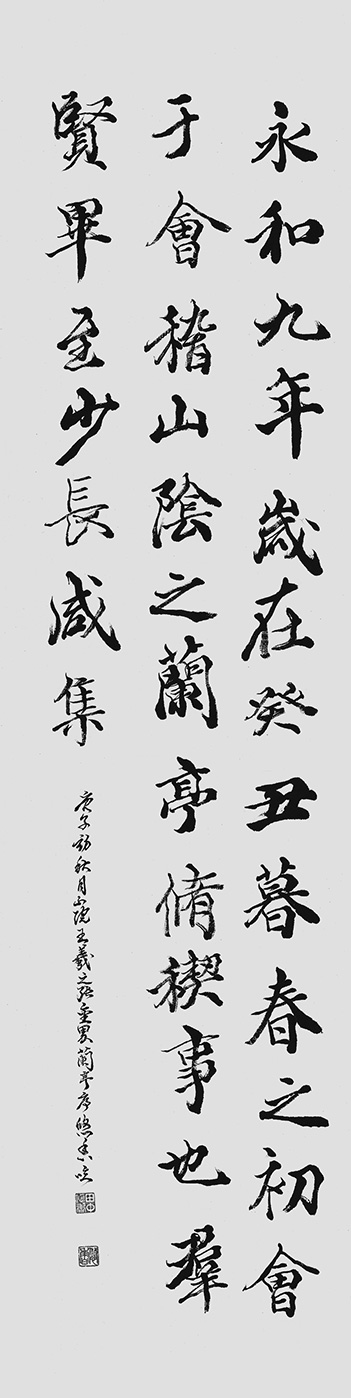 永和九年歲在癸丑暮春之初會
于會稽山陰之蘭亭脩稧事也羣
賢畢至少長咸集
庚子初秋月 王羲之 蘭亭序 悠